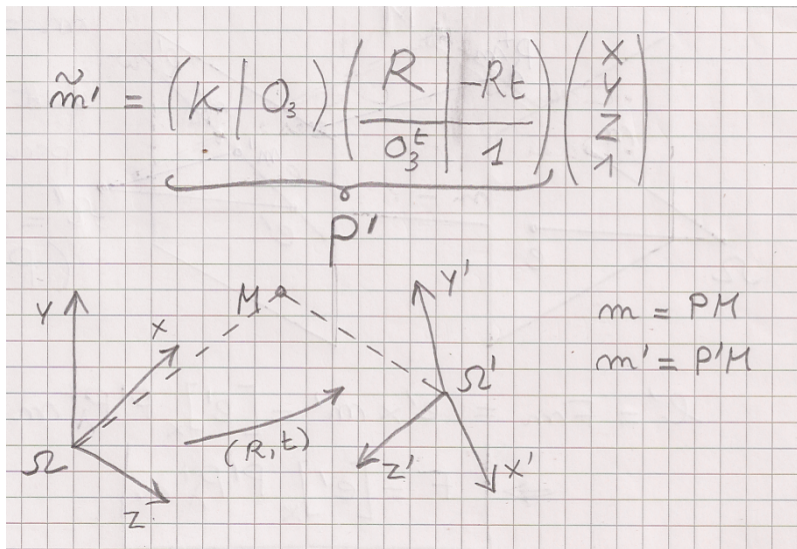 m̃' = (K | O₃) (R | -Rt / O₃ᵗ | 1) (X Y Z 1)
P'
Y X M Y' m = PM
m' = P'M
Ω' (R,t)
Ω Z Z' X'